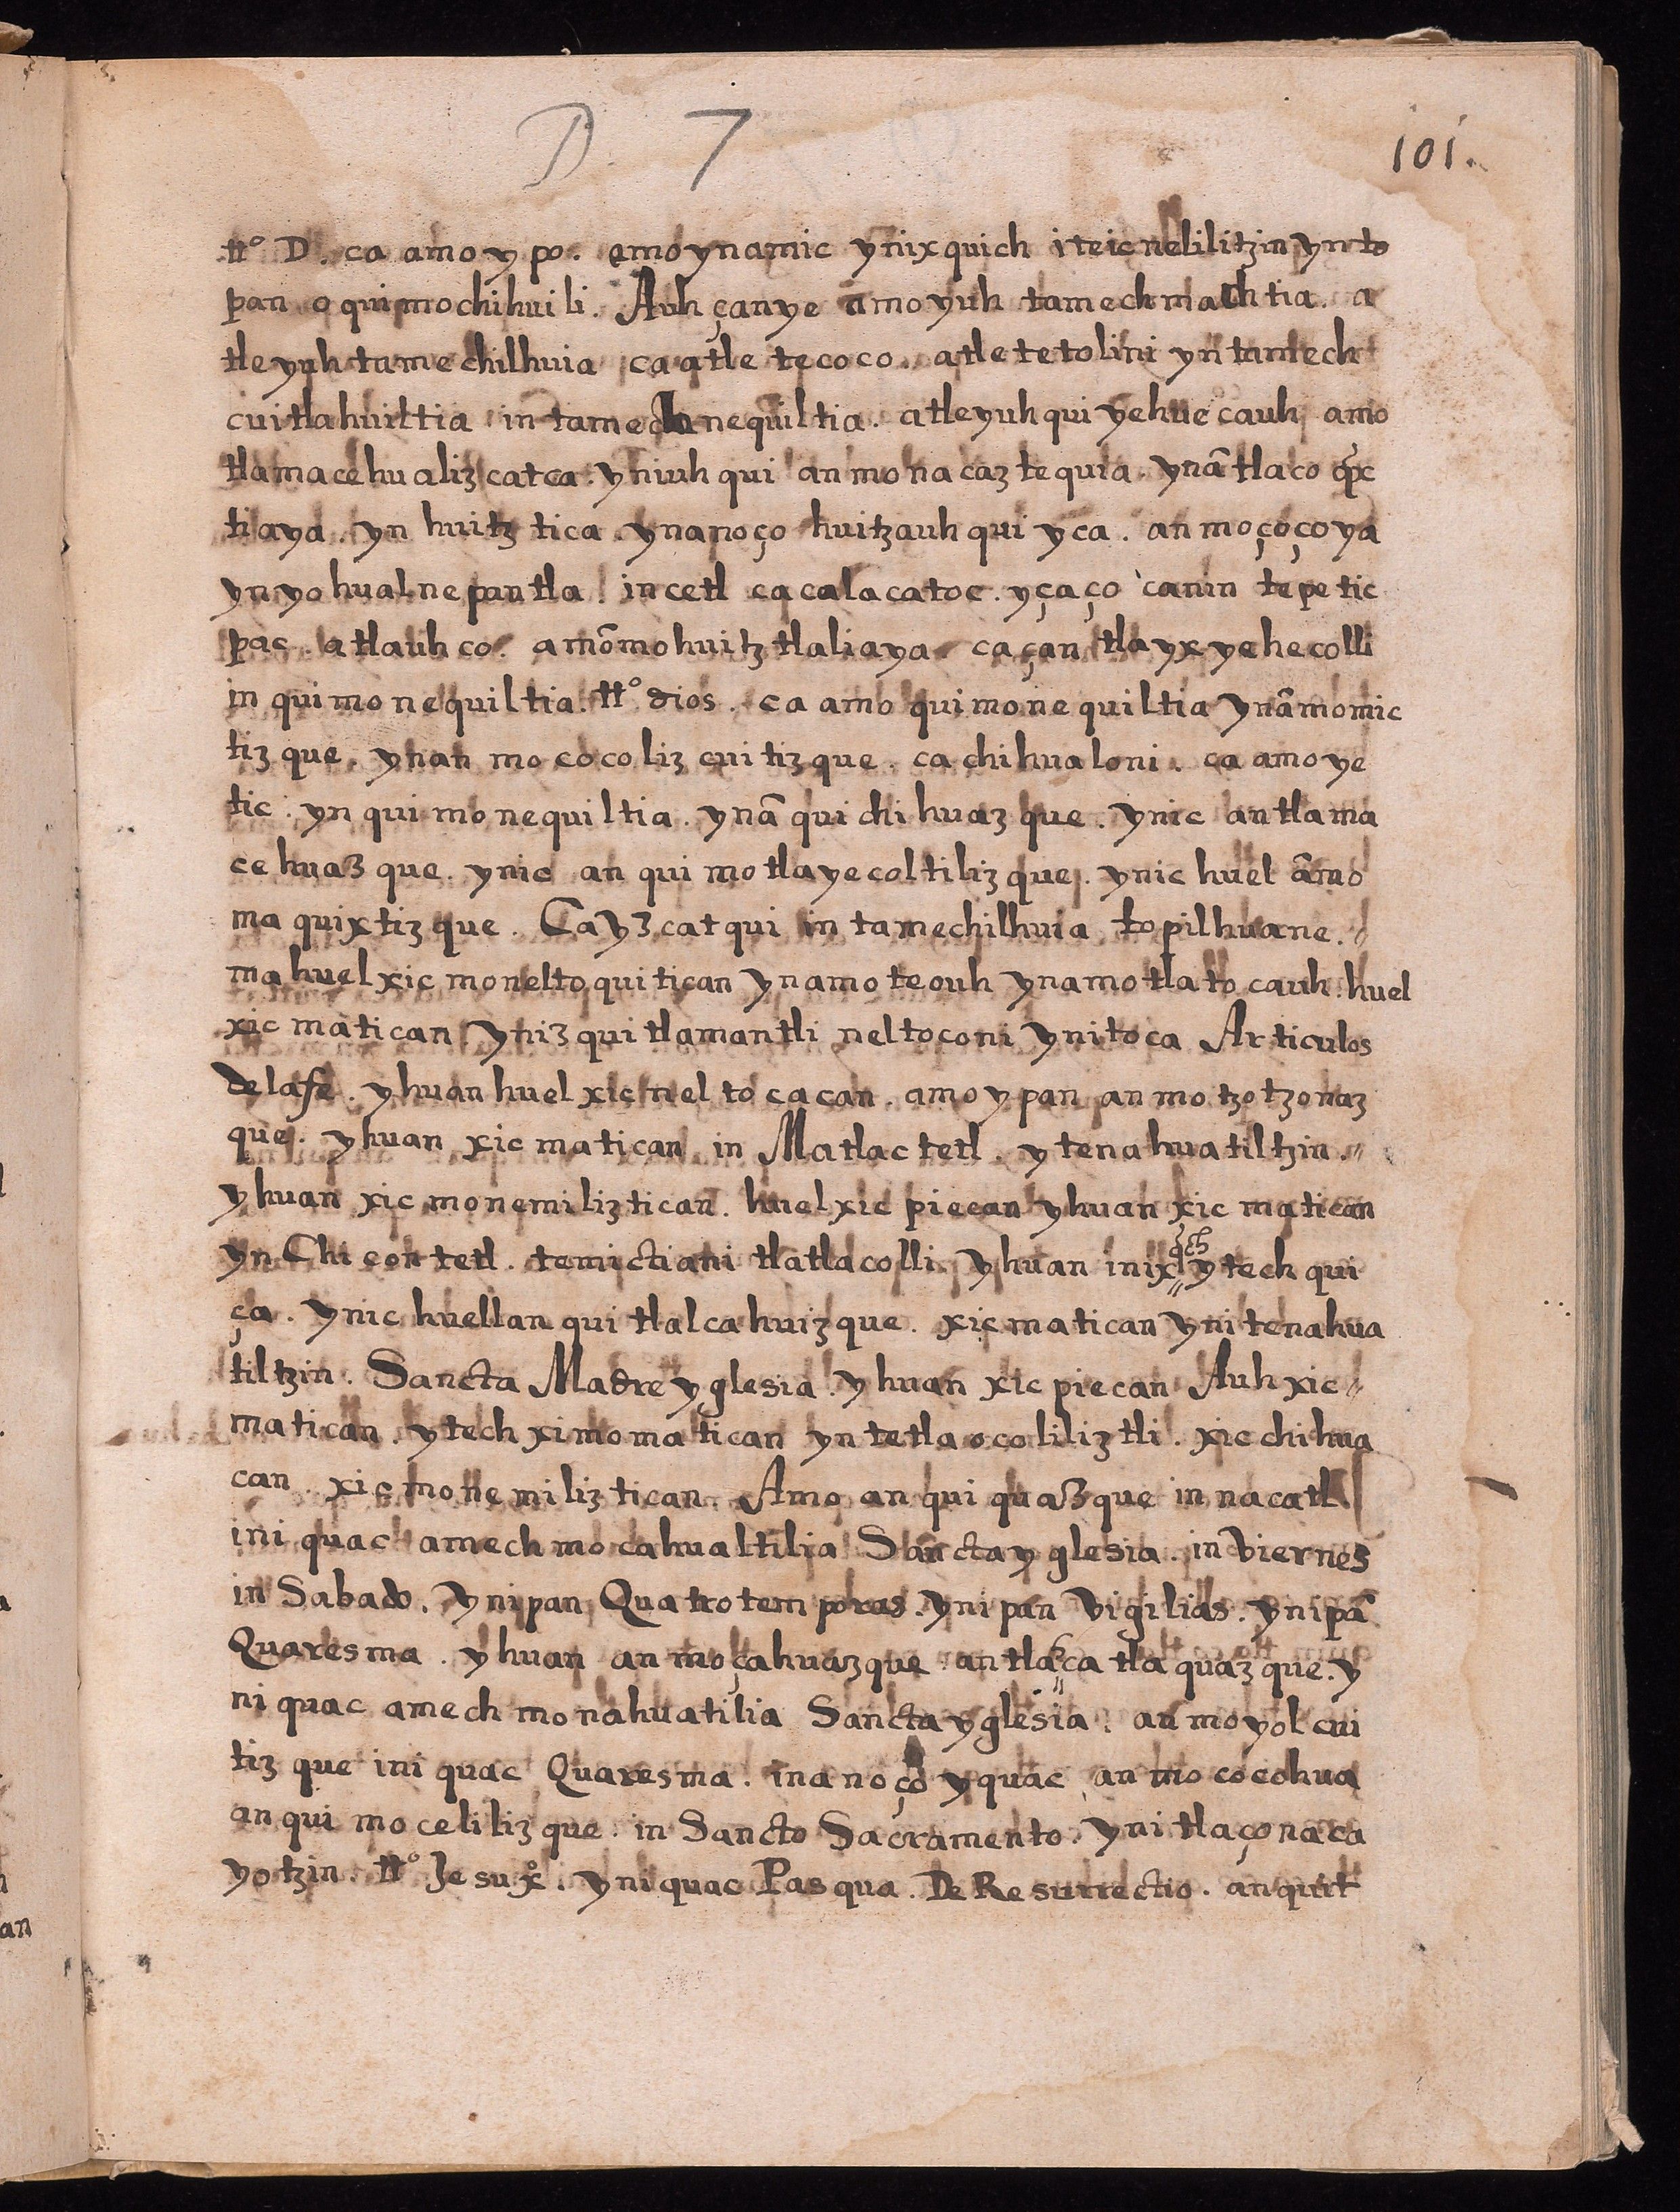 D. 7
101.
tt° D. ca amo y po. amo ynamic ynixquich iteicnelilitzin ynto
pan oquimochihuili. Auh çanye amo yuh tamechmachtia. a
tle yuh tamechilhuia ca atle tecoco. atle tetolini yn tamech
cuitlahuiltia in tamechnequiltia. atle yuhqui yehuecauh amo
tlamacehualiz catca. yniuhqui anmonacaztequia. ynã tlaco q̃c
tiaya. yn huitztica. ynanoço huitzauhqui yca. anmoçoçoya
ynyohualnepantla. in cetl cacalacatoc. yçaço canin tepetic
pac. atlauhco. amõmohuitztlaliaya. ca çan tlayxyehecolli
in quimonequiltia. tt° dios. ca amo quimonequiltia ynãmomic
tizque. ynan mococolizcuitizque. ca chihualoni. ca amo ye
tic. yn quimonequiltia. ynã quichihuazque. ynic antlama
cehuazque. ynic anquimotlayecoltilizque. ynic huel ãmo
maquixtizque. Ca yzcatqui in tamechilhuia topilhuane.
ma huel xicmoneltoquitican ynamoteouh ynamotlatocauh. huel
xicmatican ynizquitlamantli neltoconi ynitoca Articulos
delafe. yhuan huel xicneltocacan. amo ypan anmotzotzonaz
que. yhuan xicmatican in Matlactetl. ytenahuatiltzin.
yhuan xicmonemiliztican. huel xicpiecan yhuan xicmatican
yn Chicontetl. temictiani tlatlacolli. yhuan inixq̃ch ytech qui
ça. ynic huellanquitlalcahuizque. xicmatican ynitenahua
tiltzin. Sancta Madre yglesia. yhuan xicpiecan Auh xic
matican. ytech ximomatican yn tetlaocoliliztli. xicchihua
can. xicmonemiliztican. Amo anquiquazque in nacatl
iniquac amechmocahualtilia Sancta yglesia. in Viernes
in Sabado. ynipan Quatrotemporas. ynipan Vigilias. ynipã
Quaresma. yhuan anmoçahuazque antlaçatlaquazque. y
niquac amechmonahuatilia Sancta yglesia. anmoyolcui
tizque iniquac Quaresma. inanoço yquac anmococohua
anquimocelilizque. in Sancto Sacramento. ynitlaçonaca
yotzin. tt° Jesu x°. yniquac Pasqua. De Resurrectio. anquit